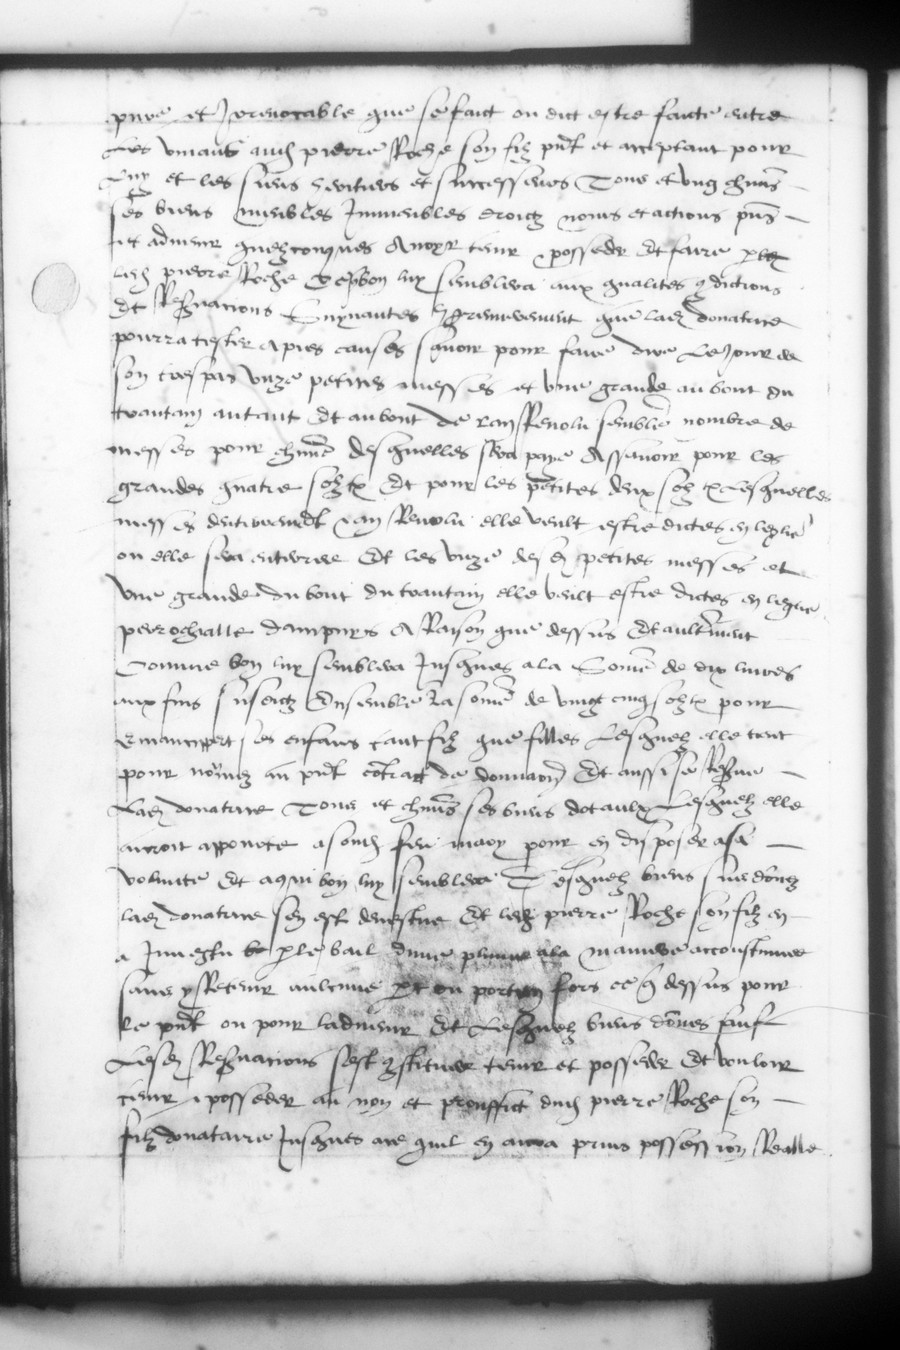 pure et Irrevocable que se faict ou dict estre faicte entre
Les vivants aud pierre Roche son filz pnt et acceptant pour
Luy et les siens heritiers et successeurs Tous et ung chuns
ses biens meubles Immeubles droictz noms et actions pns
et advenir quelzconques A voyr tenir posseder Et faire
led pierre Roche Ce que bon luy semblera aux qualites conditions
Et Reservations Suyvantes Et premierement que lad donatrice
pourra tester a pies causes scavoir pour faire dire Le Jour de
son trespas unze petites messes et une grande au bout du
trantain autant Et au bout de lan Revolu semble nombre de
messes pour chune desquelles sera paye Assavoir pour les
grandes quatre solz tz Et pour les petites deux solz tz Lesquelles
messes dentrerement lan Revolu elle veult estre dictes en leglise
ou elle sera enterree Et les unze desd petites messes et
une grande du bout du trantain elle veult estre dictes en leglise
perrochialle dampuys A Raison que dessus Et aultrement
Comme bon luy semblera Jusques a la Somme de dix livres
aux fins susdictz Ensemble la some de vingt cinq solz tz pour
Emancippert ses enfans tant filz que filles Lesquelz elle tient
pour nommez au pnt contract de donnaon Et aussi se Reserve
Lad donatrice Tous et chuns ses biens dotaulx Lesquelz elle
auroit apportee a sond feu mary pour en disposer a sa
volunte Et a qui bon luy semblera Desquelz biens sus donnez
lad donatrice sen est devestue Et led pierre Roche son filz en
a Investu par le bail dune plume a la maniere accoustumee
sans y Retenir aulcune part ou portion fors ce que dessus pour
le pnt ou pour ladvenir Et Lesquelz biens donnes sauf
Lesd Reservations sest constituee tenir et posseder Et vouloir
tenir posseder au nom et prouffict dud pierre Roche son
filz donataire Jusques a ce quil en aura prins possession Realle